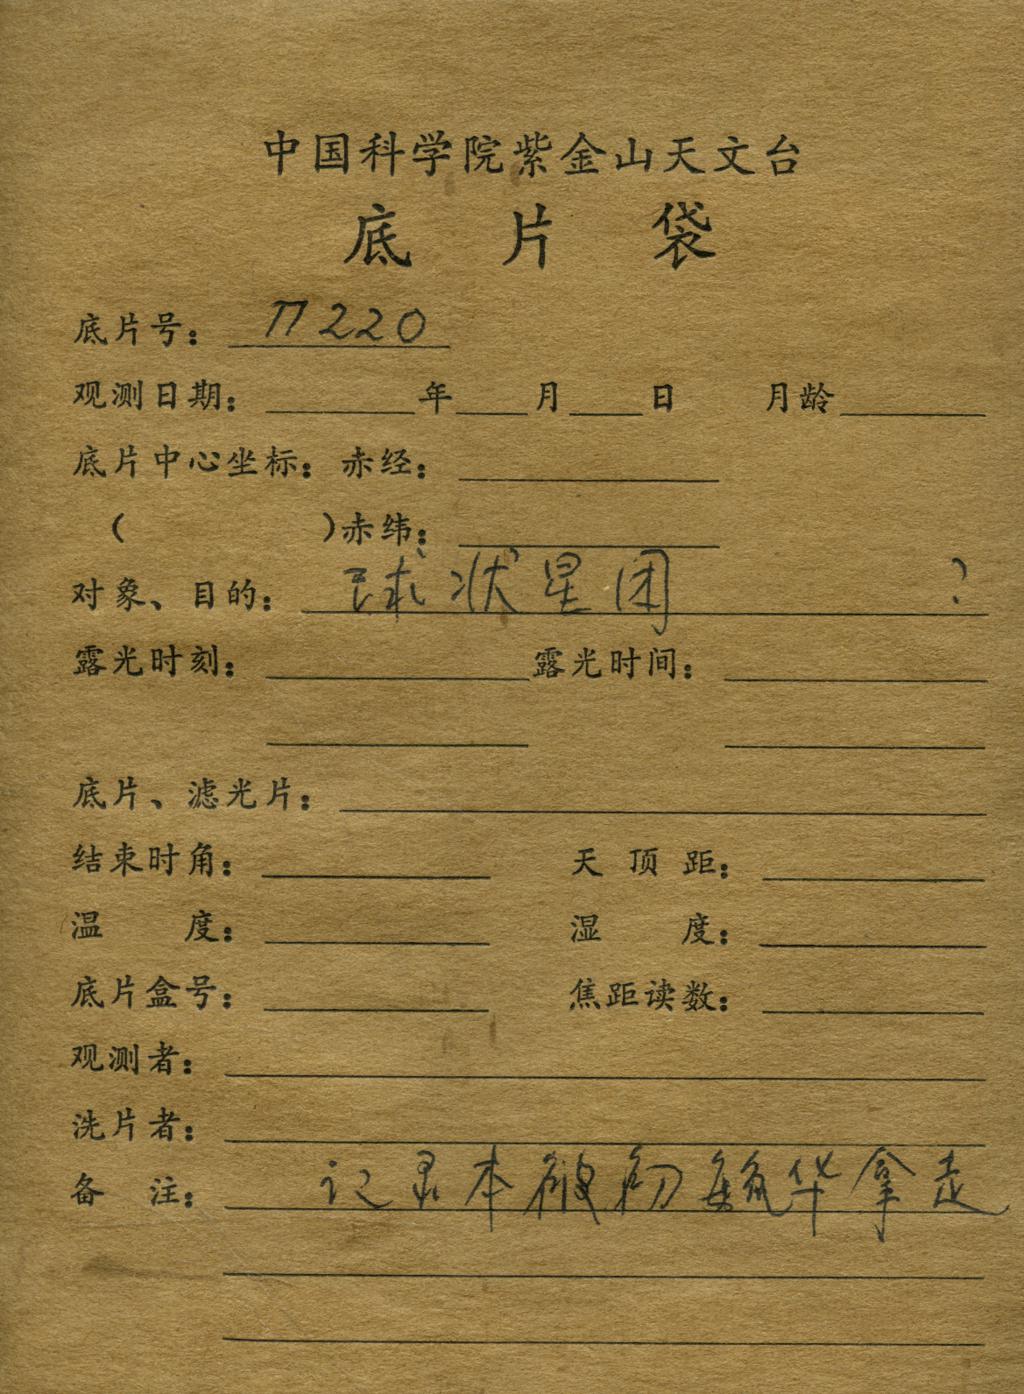 中国科学院紫金山天文台
底片袋
底片号: П220
观测日期: 年 月 日 月龄
底片中心坐标: 赤经:
( )赤纬:
对象、目的: 球状星团 ?
露光时刻: 露光时间:
底片、滤光片:
结束时角: 天顶距:
温度: 湿度:
底片盒号: 焦距读数:
观测者:
洗片者:
备注: 记录本被 华拿走